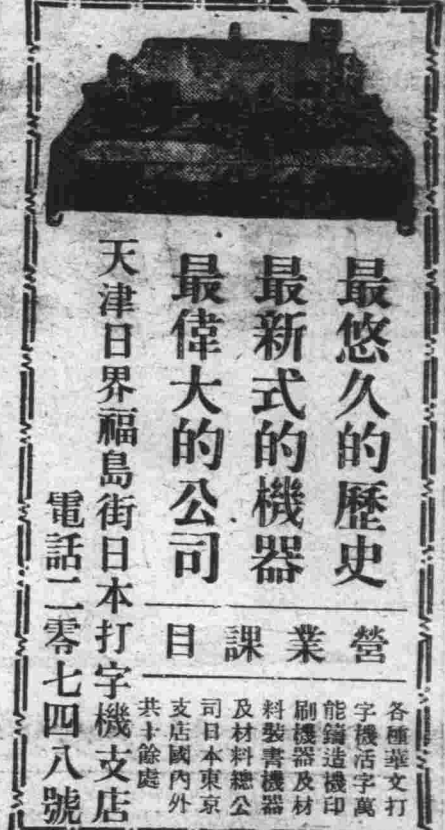 最悠久的歷史
最新式的機器
最偉大的公司
營業課目
各種華文打
字機活字萬
能鑄造機印
刷機器及材
料裝書機器
及材料總公
司日本東京
支店國內外
共十餘處
天津日界福島街日本打字機支店
電話二零七四八號